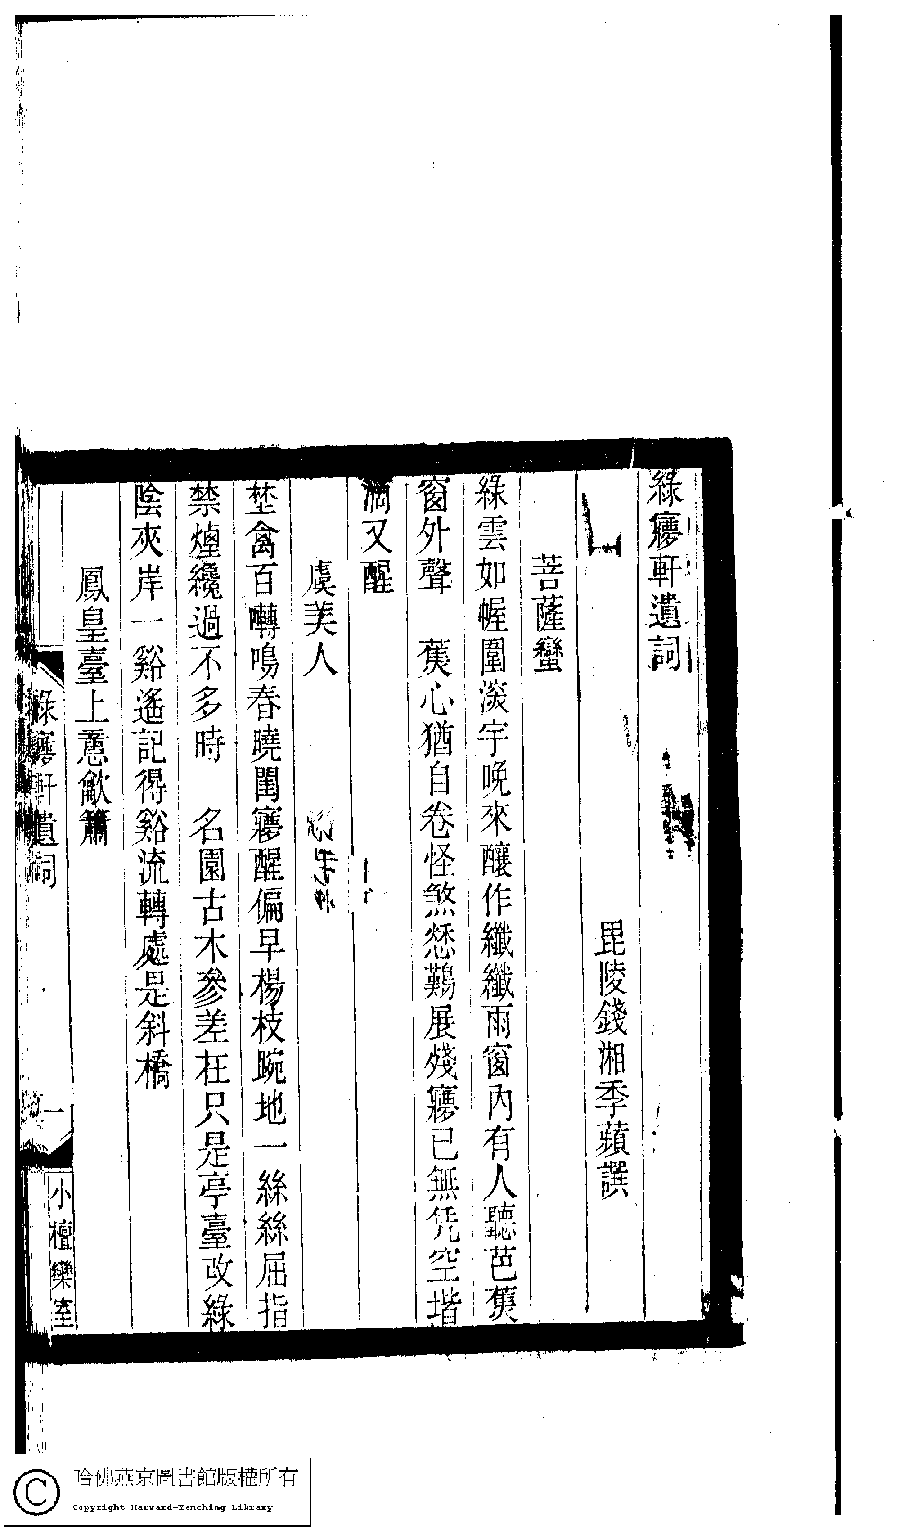 綠㝱軒遺詞
毘陵錢湘季蘋譔
菩薩蠻
綠雲如幄圍淡宇晚來釀作纖纖雨窗內有人聽芭蕉
窗外聲　蕉心猶自卷怪煞愁難展殘㝱已無凭空堦
滴又醒
虞美人
埜禽百囀鳴春曉閨㝱醒偏早楊枝踠地一絲絲屈指
禁煙纔過不多時　名園古木參差在只是亭臺改綠
陰夾岸一谿遙記得谿流轉處是斜橋
鳳皇臺上憶龡簫
綠㝱軒遺詞
一
小檀欒室
哈佛燕京圖書館版權所有
Copyright Harvard-Yenching Library